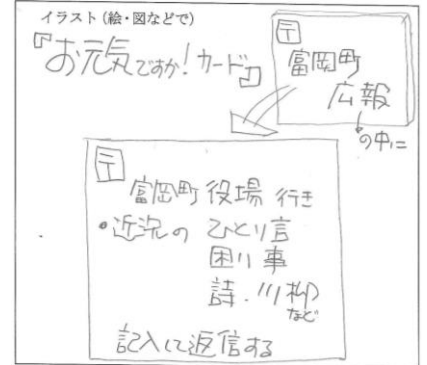 イラスト（絵・図などで）
『お元気ですか！カード』
〒
富岡町
広報
の中に
〒
富岡町役場 行き
・近況の ひとり言
困り事
詩・川柳
など
記入して返信する